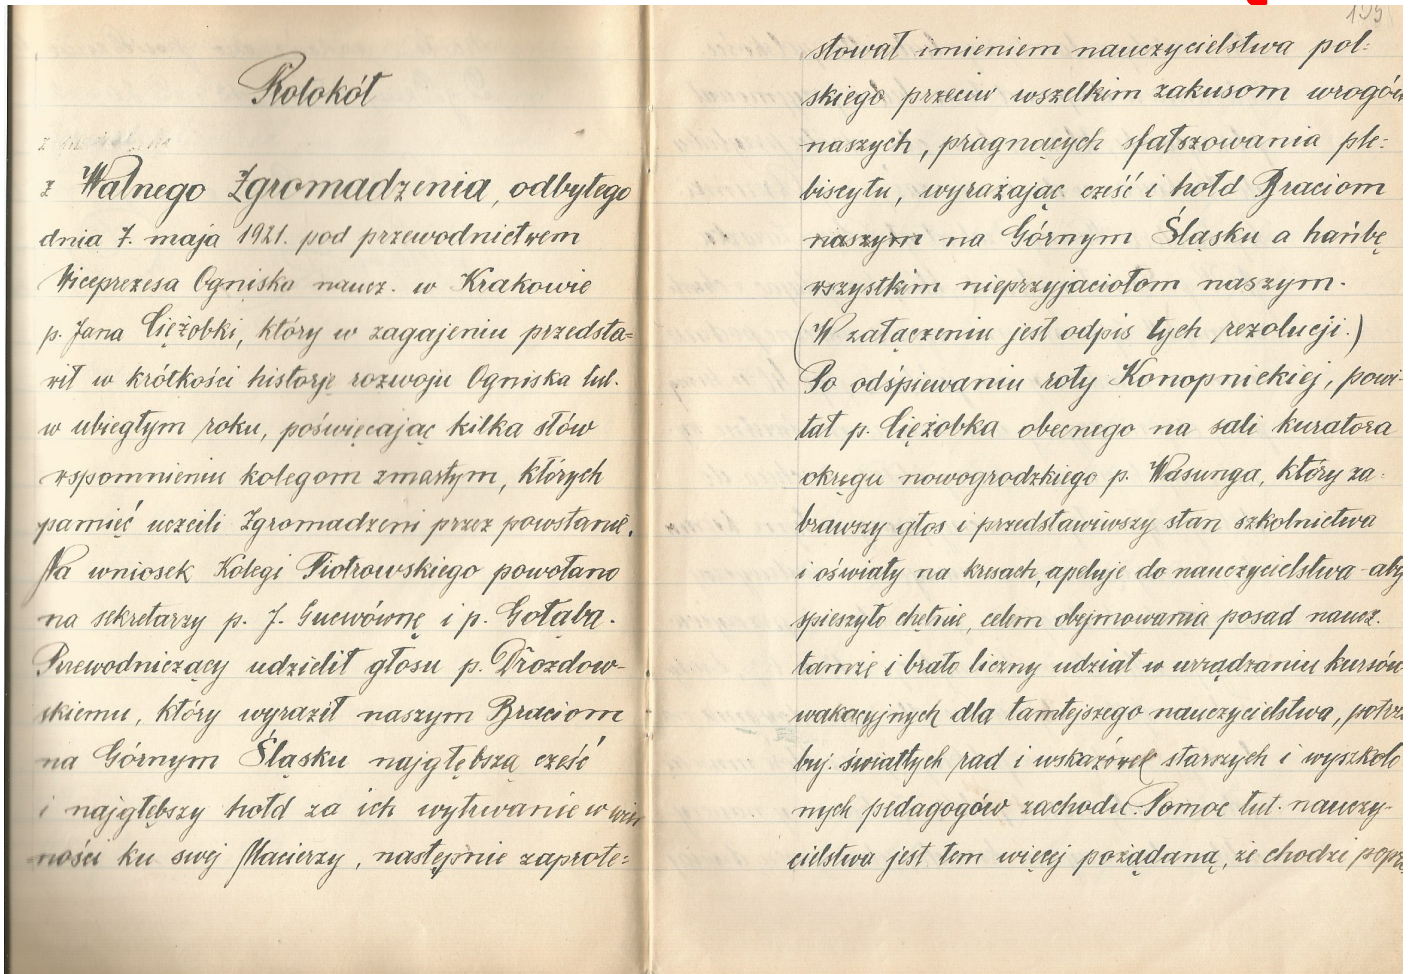 Protokół
z Walnego Zgromadzenia, odbytego
dnia 7. maja 1921. pod przewodnictwem
Viceprezesa Ogniska naucz. w Krakowie
p. Jana Ciężobki, który w zagajeniu przedsta=
wił w krótkości historję rozwoju Ogniska tut.
w ubiegłym roku, poświęcając kilka słów
wspomnieniu kolegom zmarłym, których
pamięć uczcili Zgromadzeni przez powstanie.
Na wniosek Kolegi Piotrowskiego powołano
na sekretarzy p. J. Gucwównę i p. Gołąba.
Przewodniczący udzielił głosu p. Drozdow-
skiemu, który wyraził naszym Braciom
na Górnym Śląsku najgłębszą cześć
i najgłębszy hołd za ich wytrwanie w wier
ności ku swej Macierzy, następnie zaprote=
155
stował imieniem nauczycielstwa pol=
skiego przeciw wszelkim zakusom wrogów
naszych, pragnących sfałszowania ple=
biscytu, wyrażając cześć i hołd Braciom
naszym na Górnym Śląsku a hańbę
wszystkim nieprzyjaciołom naszym.
(W załączeniu jest odpis tych rezolucji.)
Po odśpiewaniu roty Konopnickiej, powi-
tał p. Ciężobka obecnego na sali kuratora
okręgu nowogrodzkiego p. Wasunga, który za-
brawszy głos i przedstawiwszy stan szkolnictwa
i oświaty na kresach, apeluje do nauczycielstwa - aby
spieszyło chętnie, celem obejmowania posad naucz.
tamże i brało liczny udział w urządzaniu kursów
wakacyjnych dla tamtejszego nauczycielstwa, potrze
buj. światłych rad i wskazówek starszych i wyszkolo
nych pedagogów zachodu. Pomoc tut. nauczy-
cielstwa jest tem więcej pożądaną, że chodzi poprze